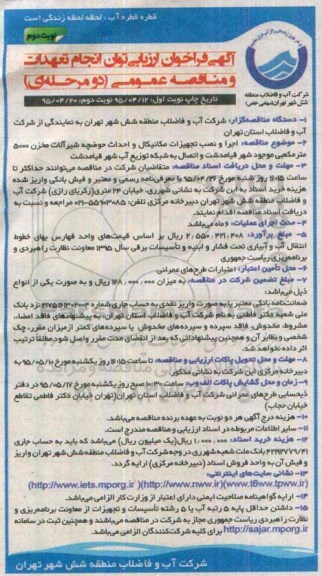 قطره قطره آب، لحظه لحظه زندگی است
نوبت دوم
آگهی فراخوان ارزیابی توان انجام تعهدات
و مناقصه عمومی (دو مرحله‌ای)
شرکت آب و فاضلاب منطقه
شش شهر تهران (سهامی خاص)
تاریخ چاپ نوبت اول: ۹۵/۰۴/۱۲ نوبت دوم: ۹۵/۰۴/۲۰
۱- دستگاه مناقصه‌گزار: شرکت آب و فاضلاب منطقه شش شهر تهران به نمایندگی از شرکت
آب و فاضلاب استان تهران
۲- موضوع مناقصه: اجرا و نصب تجهیزات مکانیکال و احداث حوضچه شیرآلات مخزن ۵۰۰۰
مترمکعبی موجود شهر قیامدشت و اتصال به شبکه توزیع آب شهر قیامدشت
۳- مهلت و محل دریافت اسناد مناقصه: متقاضیان شرکت در مناقصه می‌توانند حداکثر تا
ساعت ۱۵:۰۰ روز شنبه مورخ ۹۵/۰۴/۲۶ با معرفی‌نامه رسمی و معتبر و فیش بانکی واریز شده
هزینه خرید اسناد به این شرکت به نشانی شهرری، خیابان ۲۴ متری (زکریای رازی) شرکت آب
و فاضلاب منطقه شش شهر تهران دبیرخانه مرکزی تلفن: ۰۲۱-۵۵۹۰۳۰۸۵ مراجعه و نسبت به
دریافت اسناد مناقصه اقدام نمایند.
۴- مدت اجرای عملیات: ۶ ماه می‌باشد
۵- مبلغ برآورد: ۲/۵۵۰/۴۲۱/۴۰۸ ریال بر اساس قیمت‌های واحد فهارس بهای خطوط
انتقال آب و آبیاری تحت فشار و ابنیه و تاسیسات برقی سال ۱۳۹۵ معاونت نظارت راهبردی و
برنامه‌ریزی ریاست جمهوری
۶- محل تأمین اعتبار: اعتبارات طرح‌های عمرانی
۷- مبلغ تضمین شرکت در مناقصه: به میزان ۱۲۸/۰۰۰/۰۰۰ ریال و به صورت یکی از انواع
ذیل می‌باشد:
ضمانت‌نامه بانکی معتبر یا به صورت واریز نقدی به حساب جاری شماره نزد بانک
ملی شعبه دکتر فاطمی به نام شرکت آب و فاضلاب استان تهران، به پیشنهادهای فاقد امضاء،
مشروط، مخدوش، فاقد سپرده و سپرده‌های مخدوش یا سپرده‌های کمتر از میزان مقرر، چک
شخصی و نظایر آن و همچنین پیشنهاداتی که بعد از انقضای مدت مقرر واصل شود مطلقا ترتیب
اثر داده نخواهد شد.
۸- مهلت و محل تحویل پاکات ارزیابی و مناقصه: تا ساعت ۱۵:۰۰ روز یکشنبه مورخ ۹۵/۰۵/۱۰ به
دبیرخانه مرکزی این شرکت به نشانی مذکور
۹- زمان و محل گشایش پاکات الف و ب: ساعت ۱۰:۳۰ صبح روز یکشنبه مورخ ۹۵/۰۵/۱۷ در دفتر
ذیحسابی طرح‌های عمرانی شرکت آب و فاضلاب استان تهران (تهران خیابان دکتر فاطمی تقاطع
خیابان حجاب)
۱۰- هزینه درج آگهی هر دو نوبت به عهده برنده مناقصه می‌باشد.
۱۱- سایر اطلاعات مربوطه در اسناد ارزیابی و مناقصه مندرج است.
۱۲- هزینه خرید اسناد: ۱/۰۰۰/۰۰۰ ریال (یک میلیون ریال) می‌باشد که باید به حساب جاری
بانک ملت شعبه شهرری در وجه شرکت آب و فاضلاب منطقه شش شهر تهران واریز
و فیش آن به واحد فروش اسناد (دبیرخانه مرکزی) ارایه گردد.
۱۳- نشانی سایت‌های اینترنتی:
(http://www.iets.mporg.ir) (http://www.nww.ir) (www.t6ww.tpww.ir)
۱۴- ارایه گواهینامه صلاحیت ایمنی دارای اعتبار از وزارت کار الزامی می‌باشد.
۱۵- داشتن حداقل پایه ۵ رتبه آب یا ۵ رشته تأسیسات و تجهیزات از معاونت برنامه‌ریزی و
نظارت راهبردی ریاست جمهوری مجاز به شرکت در مناقصه می‌باشند و همچنین ثبت در سامانه
http://sajar.mporg.ir برای کلیه شرکت‌کنندگان الزامی می‌باشد.
شرکت آب و فاضلاب منطقه شش شهر تهران